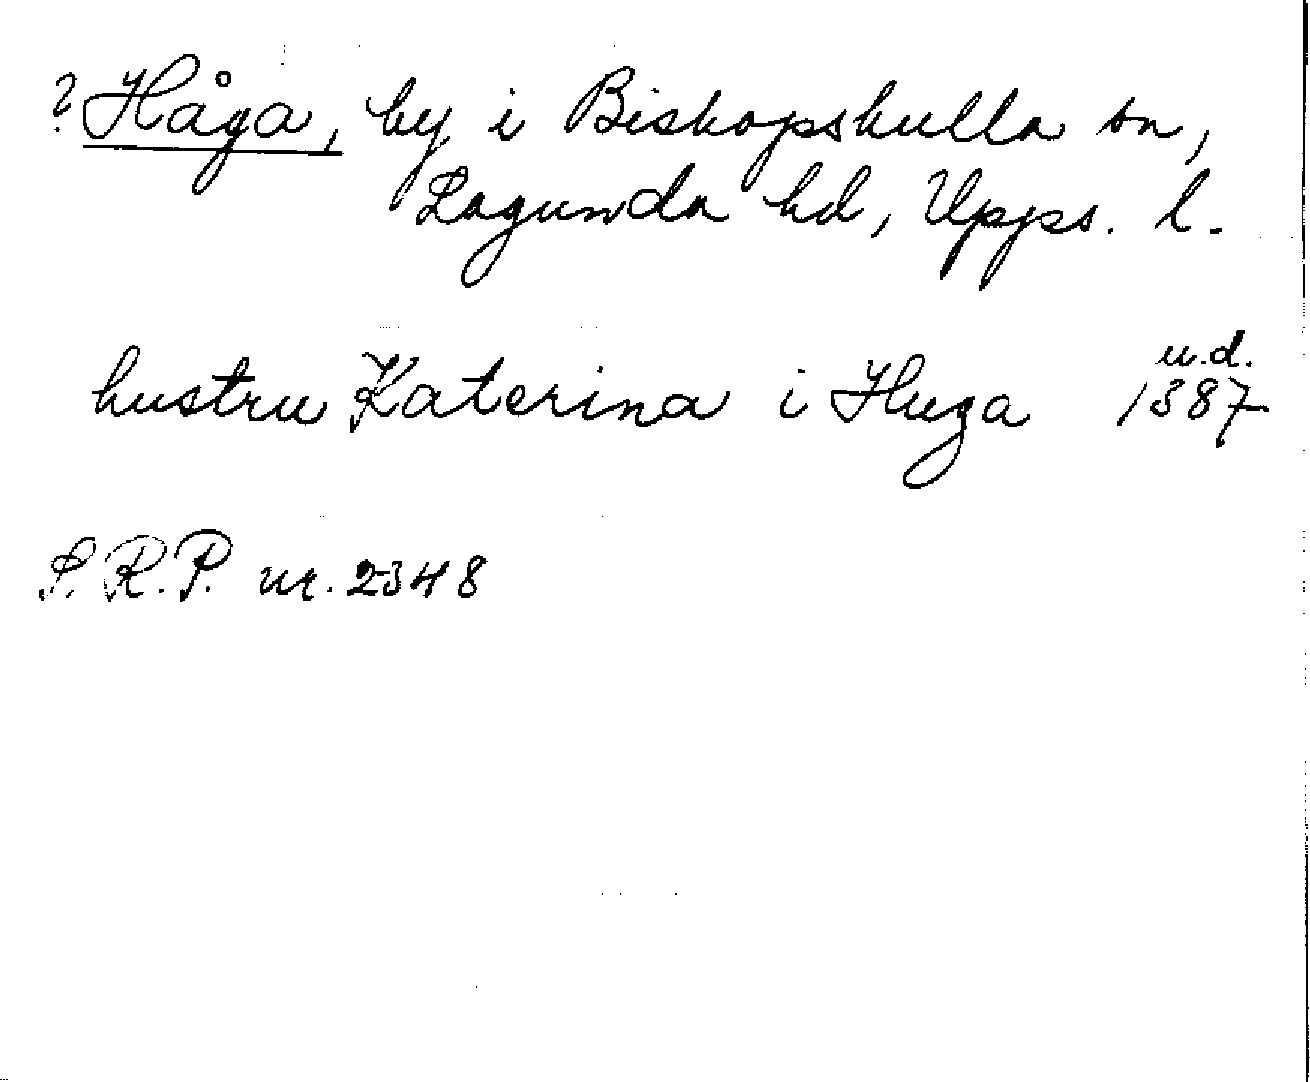 ? Håga, by i Biskopskulla sn,
Lagunda hd, Upps. l.
u.d.
hustru Katerina i Huga 1387
S.R.P. nr. 2348